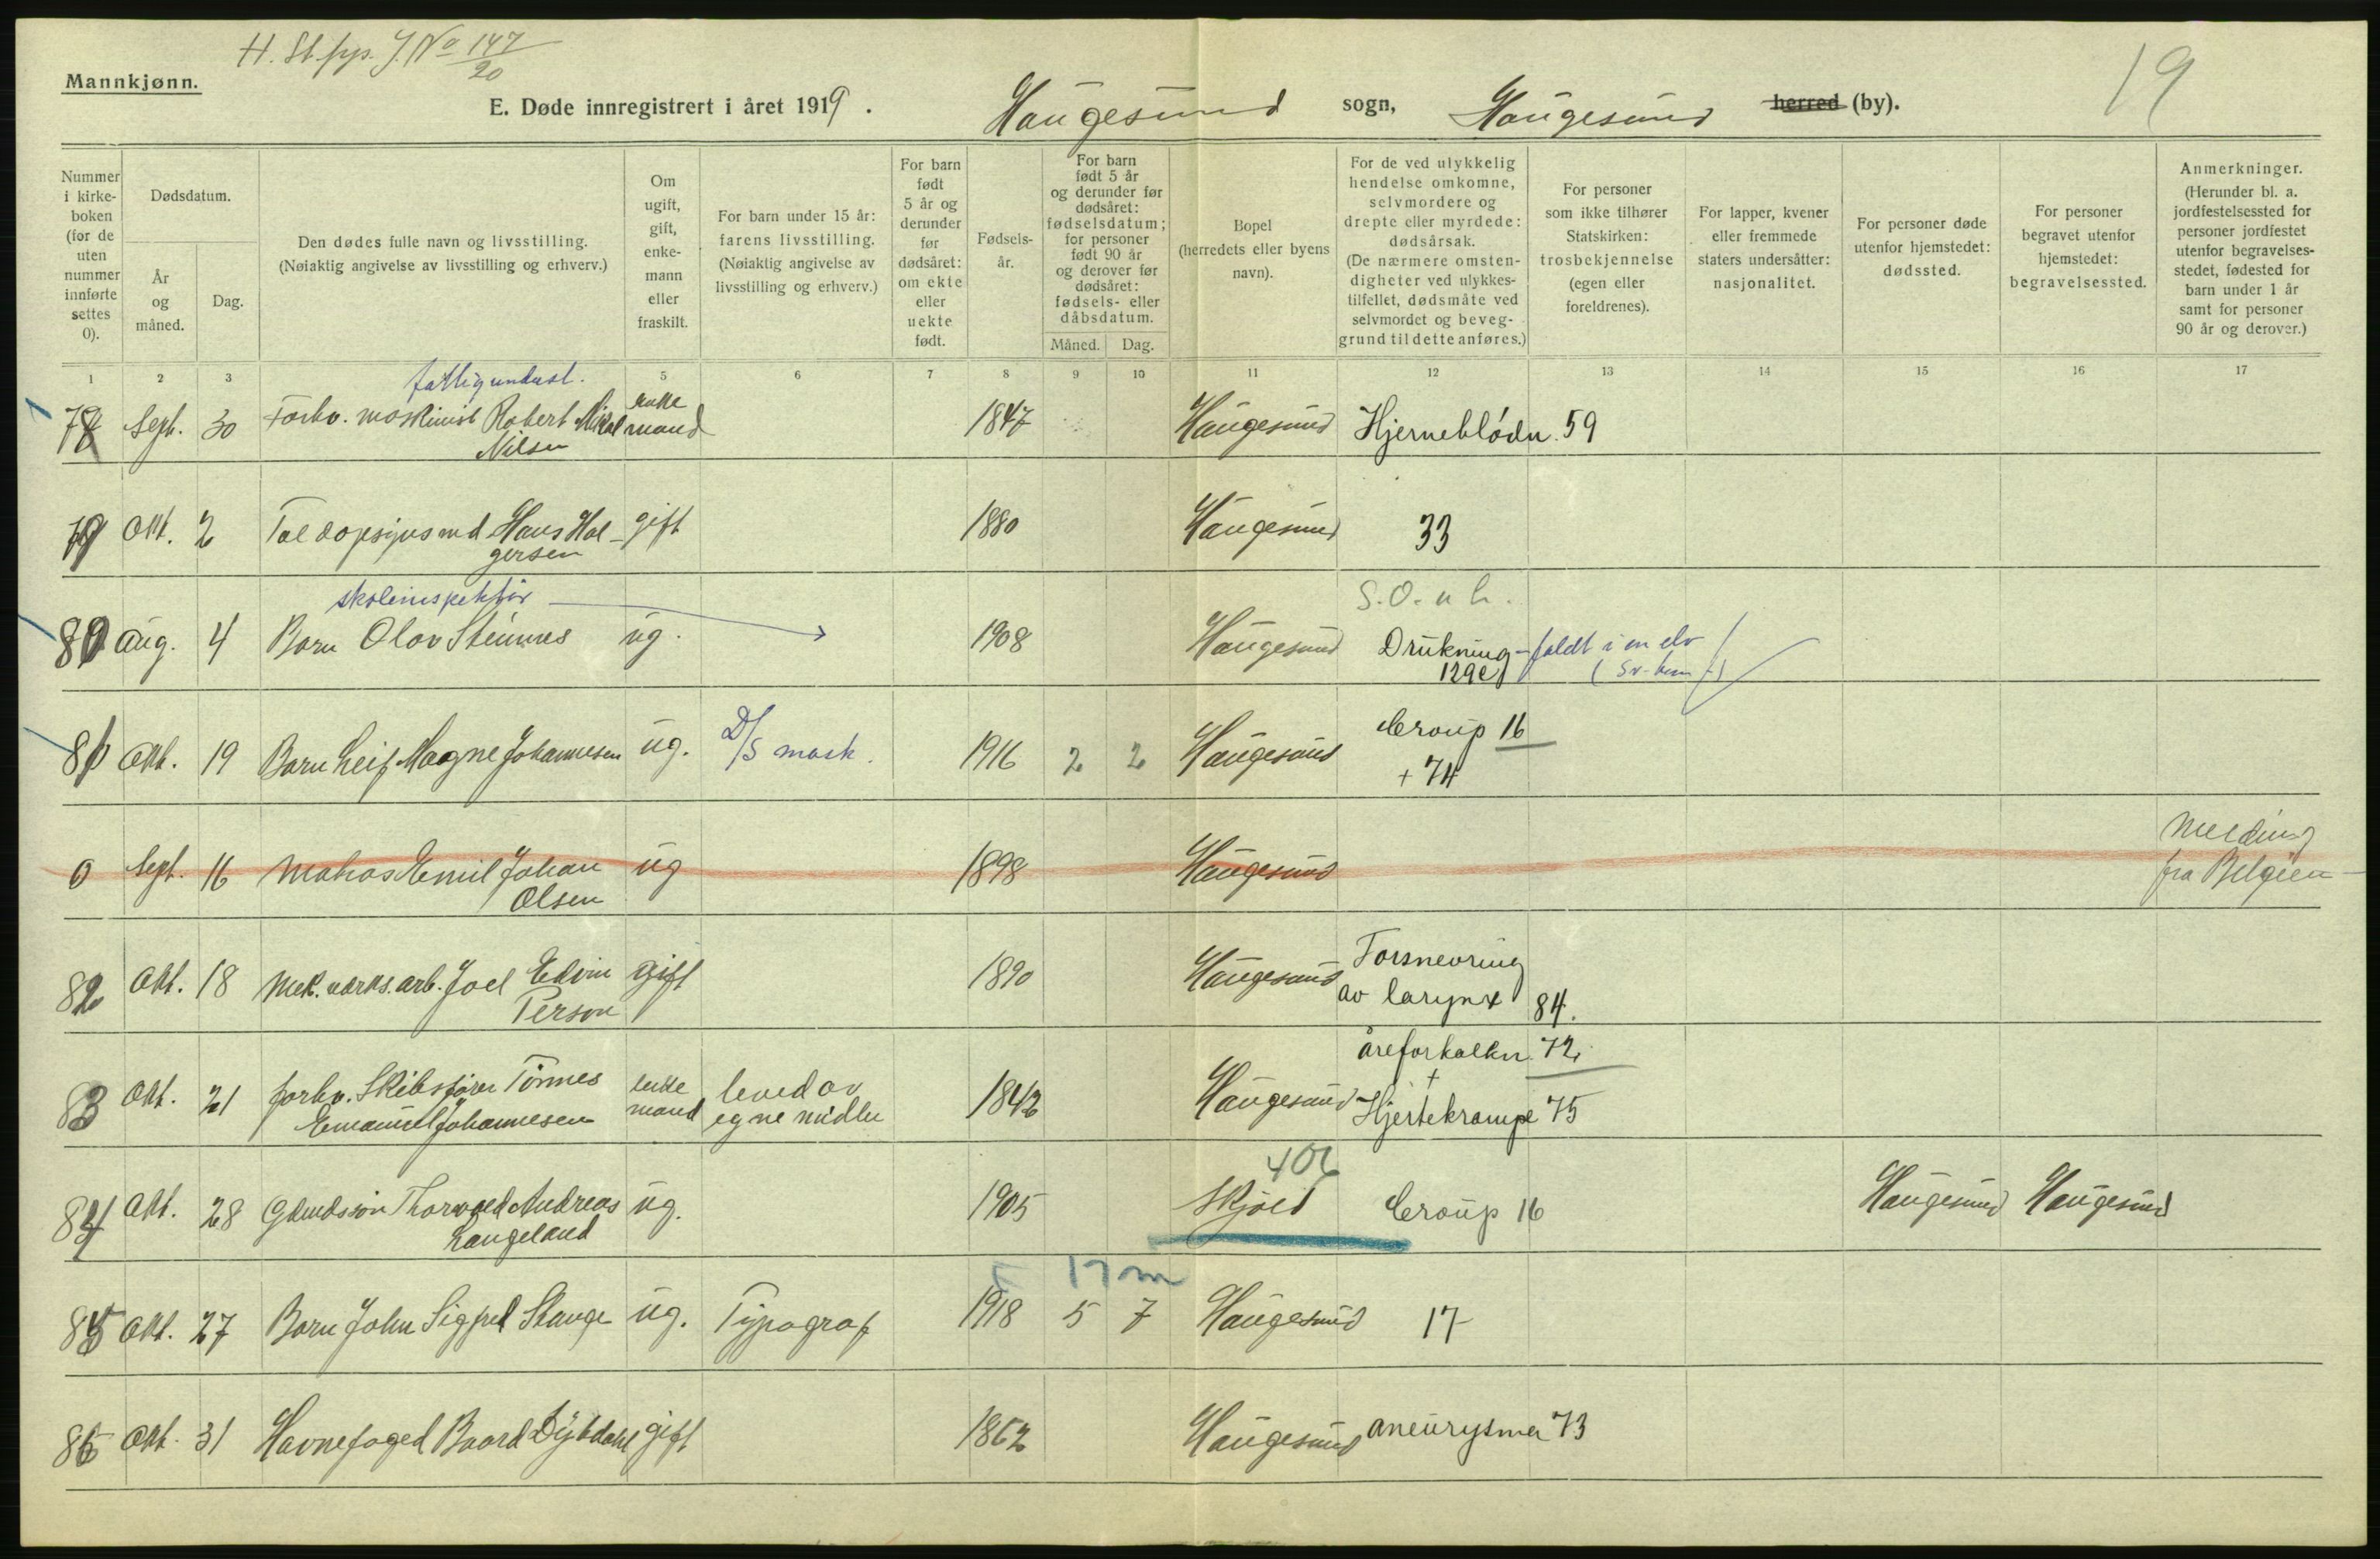 H. St. fys. J. No 147/20
19
Mannkjønn.
E. Døde innregistrert i året 1919. Haugesund sogn, Haugesund herred (by).
Nummer i kirke-boken (for de uten nummer innførte settes 0).
Dødsdatum.
År og måned.
Dag.
Den dødes fulle navn og livsstilling.
(Nøiaktig angivelse av livsstilling og erhverv.)
Om ugift, gift, enke-mann eller fraskilt.
For barn under 15 år: farens livsstilling.
(Nøiaktig angivelse av livsstilling og erhverv.)
For barn født 5 år og derunder før dødsåret: om ekte eller uekte født.
Fødsels-år.
For barn født 5 år og derunder før dødsåret: fødselsdatum; for personer født 90 år og derover før dødsåret: fødsels- eller dåbsdatum.
Måned. Dag.
Bopel (herredets eller byens navn).
For de ved ulykkelig hendelse omkomne, selvmordere og drepte eller myrdede: dødsårsak.
(De nærmere omsten-digheter ved ulykkes-tilfellet, dødsmåte ved selvmordet og beveg-grund til dette anføres.)
For personer som ikke tilhører Statskirken: trosbekjennelse (egen eller foreldrenes).
For lapper, kvener eller fremmede staters undersåtter: nasjonalitet.
For personer døde utenfor hjemstedet: dødssted.
For personer begravet utenfor hjemstedet: begravelsessted.
Anmerkninger.
(Herunder bl. a. jordfestelsessted for personer jordfestet utenfor begravelses-stedet, fødested for barn under 1 år samt for personer 90 år og derover.)
1 2 3 5 6 7 8 9 10 11 12 13 14 15 16 17
fattigunderst.
78 Sept. 30 Forhv. maskinist Robert Mikal Nilsen enke mand 1847 Haugesund Hjerneblödn. 59
79 Okt. 2 Hans Hol-gersen gift 1880 Haugesund 33
skoleinspektör
S.O. u h.
80 Aug. 4 Barn Olav Steinnes ug. 1908 Haugesund Drukning - faldt i en elv
129e
81 Okt. 19 Barn Leif Magne Johannesen ug. D/S mask. 1916 2 2 Haugesund Croup 16
+ 74
0 Sept. 16 Matros Emil Johan Olsen ug 1898 Haugesund Melding fra Belgien
82 Okt. 18 Mek. verks. arb. Joel Edvin Person gift 1890 Haugesund Forsnevring av larynx 84.
83 Okt. 21 forhv. Skibsförer Tönnes Emanuel Johannesen enke mand leved av egne midler 1842 Haugesund åreforkalkn. 72
+
Hjertekrampe 75
406
84 Okt. 28 Gdmdssön Thorvald Andreas Langeland ug. 1905 Skjold Croup 16 Haugesund Haugesund
17 m
85 Okt. 27 Barn John Sigfred Stange ug. Typograf 1918 5 7 Haugesund 17
86 Okt. 31 Havnefoged Baard Dybdahl gift 1862 Haugesund aneurysma 73